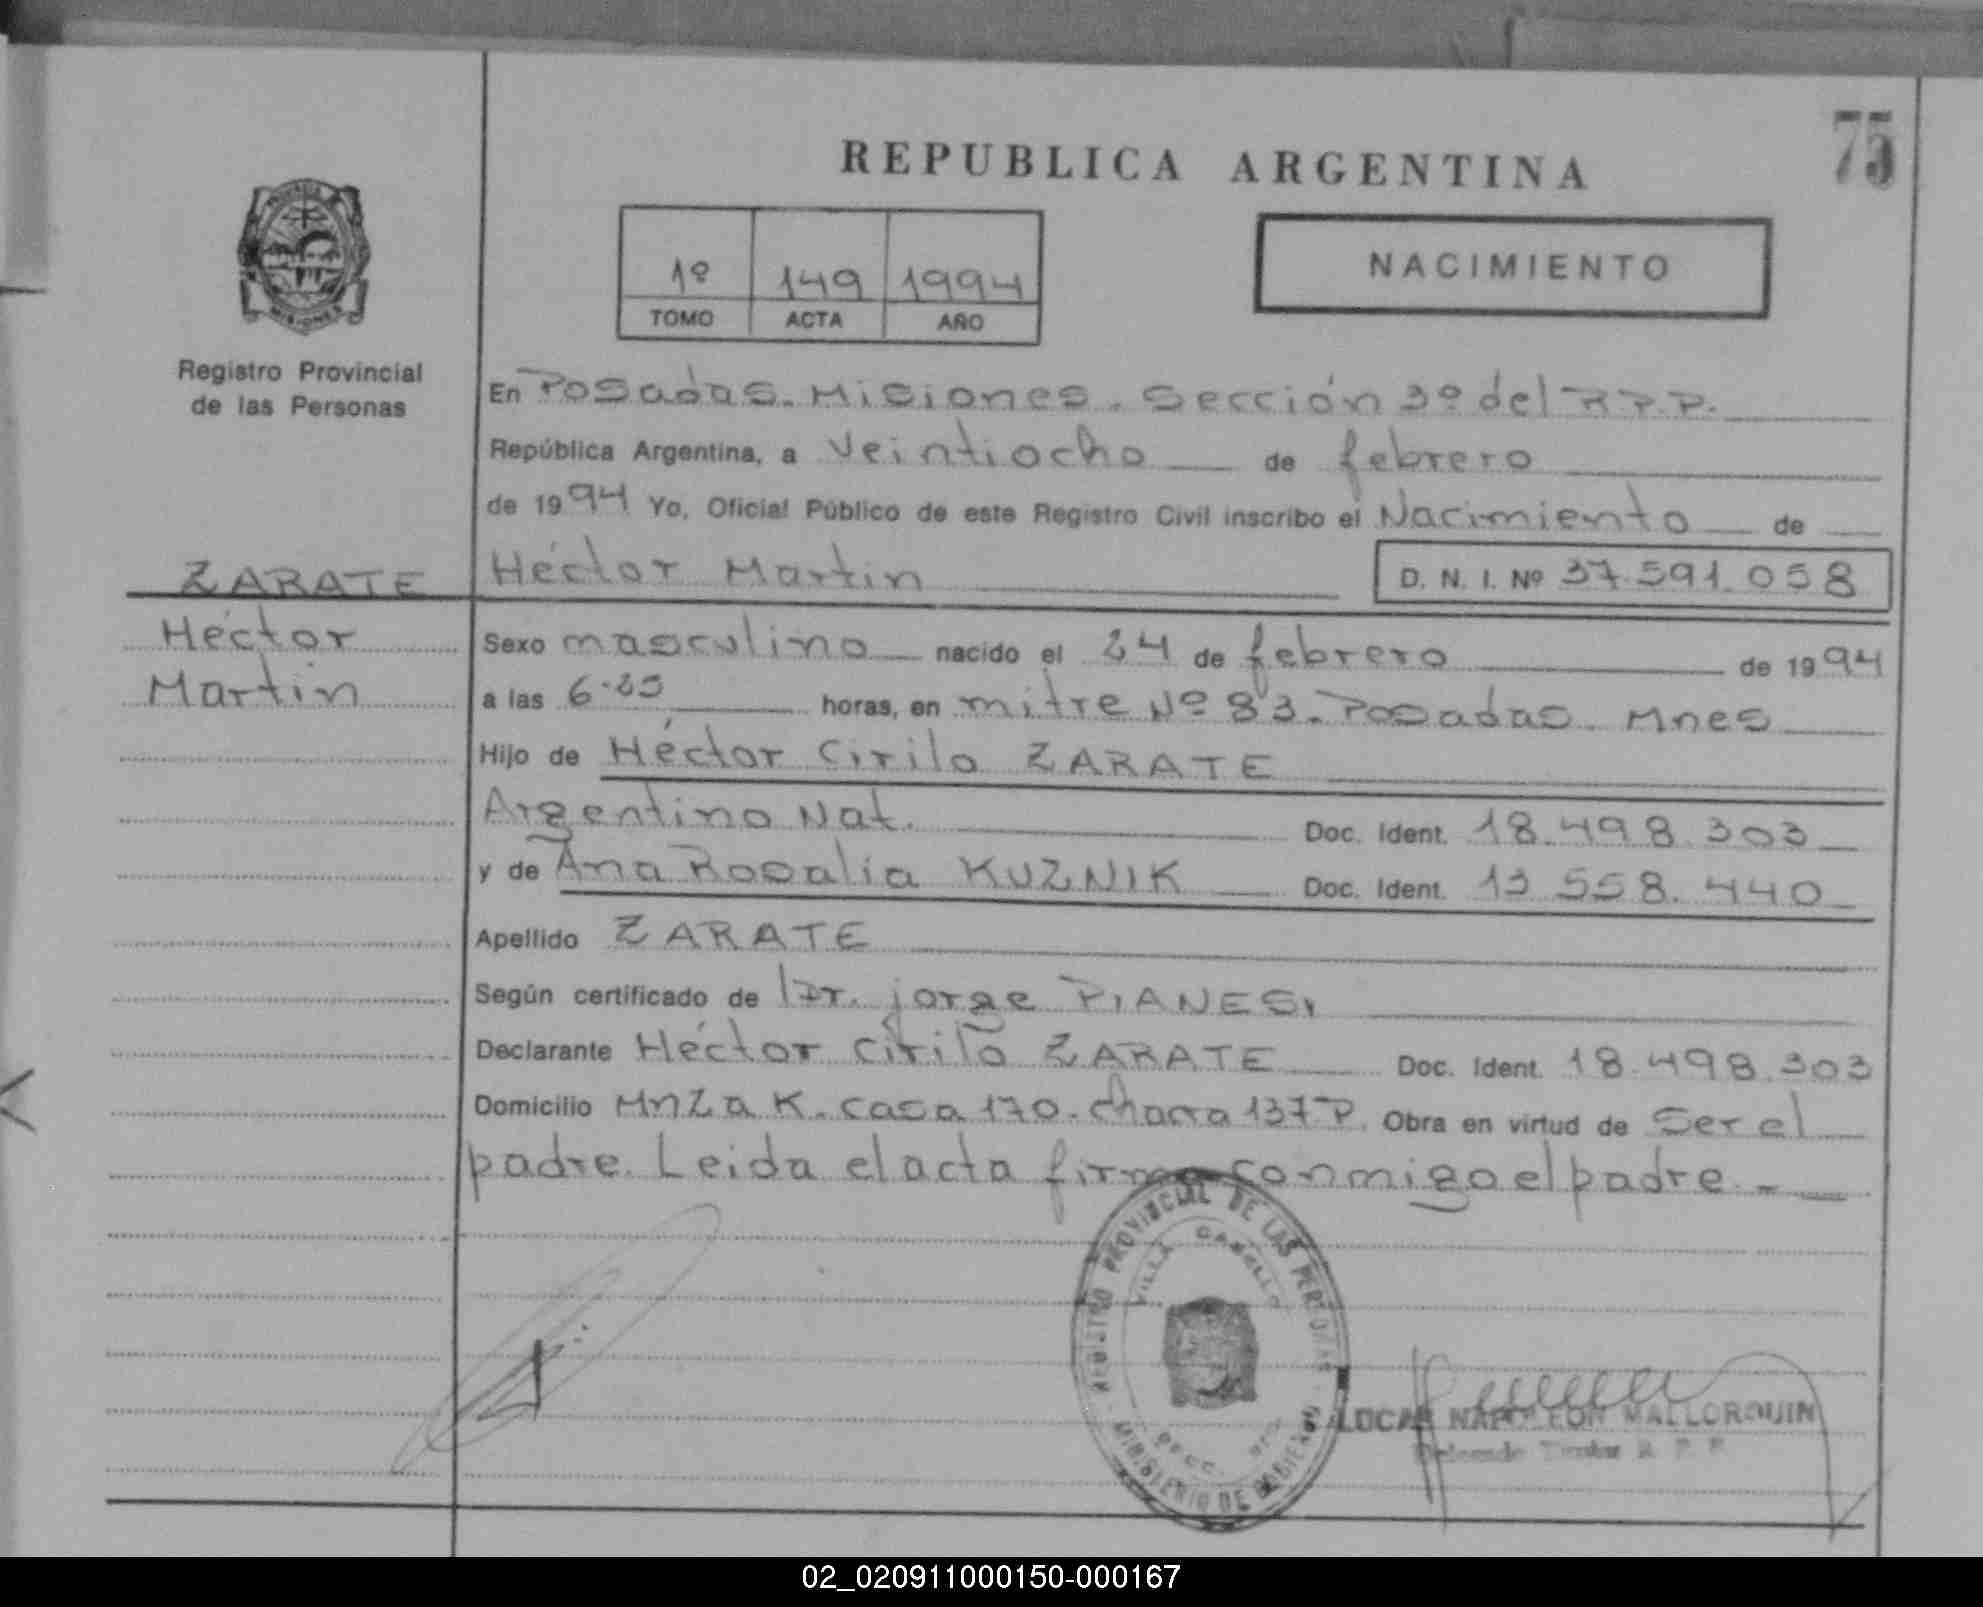 75
REPUBLICA ARGENTINA
1º 149 1994
TOMO ACTA AÑO
NACIMIENTO
MISIONES
Registro Provincial
de las Personas
En Posadas. Misiones. Sección 3º del R.P.P.
República Argentina, a Veintiocho de febrero
de 1994 Yo, Oficial Público de este Registro Civil inscribo el Nacimiento de
ZARATE Héctor Martin D. N. I. Nº 37.591.058
Héctor
Martin
Sexo masculino nacido el 24 de febrero de 1994
a las 6. horas, en mitre Nº 83. Posadas. Mnes
Hijo de Héctor Cirilo ZARATE
Argentino Nat. Doc. Ident. 18.498.303
y de Ana Rosalia KUZNIK Doc. Ident. 558.440
Apellido ZARATE
Según certificado de Dr. jorge PIANESI
Declarante Héctor Cirilo ZARATE Doc. Ident. 18.498.303
Domicilio Mnza K. casa 170. chacra 137 P. Obra en virtud de Ser el
padre. Leida el acta firma conmigo el padre.
REGISTRO PROVINCIAL DE LAS PERSONAS
VILLA CABELLO
MINISTERIO DE GOBIERNO
NAPOLEON MALLORQUIN
Delegado Titular R. P. P.
02_020911000150-000167